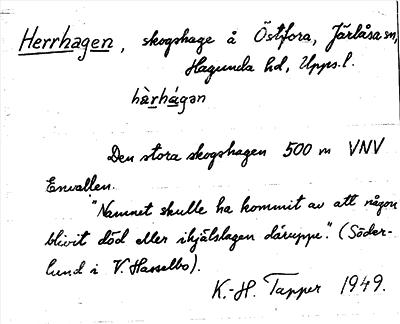 Herrhagen, skogshage å Östfora, Järlåsa sn,
Hagunda hd, Upps. l.
hàrhágan
Den stora skogshagen 500 m VNV
Envallen.
"Namnet skulle ha kommit av att någon
blivit död eller ihjälslagen däruppe". (Söder-
lund i V. Hasselbo).
K.-H. Tapper 1949.